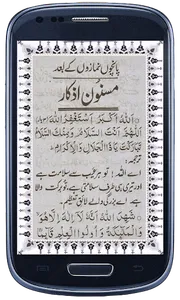 پانچوں نمازوں کے بعد
مسنون اذکار
اَللّٰهُ اَكْبَرُ اَسْتَغْفِرُ اللّٰهَ
اَللّٰهُمَّ اَنْتَ السَّلَامُ وَمِنْكَ السَّلَامُ
تَبَارَكْتَ يَا ذَا الْجَلَالِ وَالْاِكْرَامِ
ترجمہ:
اے اللہ! تو ہر عیب سے سلامت ہے
اور تیری ہی طرف سلامتی ہے، تو برکت والا
ہے، اے بزرگی والے لائق تعظیم۔
شَهِدَ اللّٰهُ اَنَّهٗ لَآ اِلٰهَ اِلَّا هُوَ
وَالْمَلٰٓئِكَةُ وَاُولُوا الْعِلْمِ قَآئِمًا
SAMSUNG